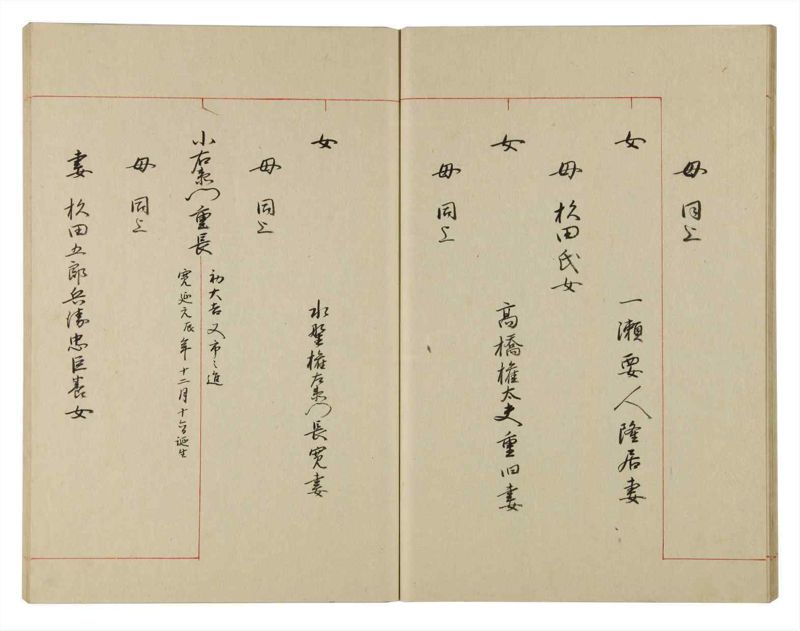 母 同上
女
一瀬要人隆居妻
母 杦田氏女
女
高橋権太夫重旧妻
母 同上
女
水野権左衛門長寛妻
母 同上
小右衛門重長
初大吉又市之進
寛延元辰年十二月十日誕生
母 同上
妻 杦田五郎兵衛忠臣養女